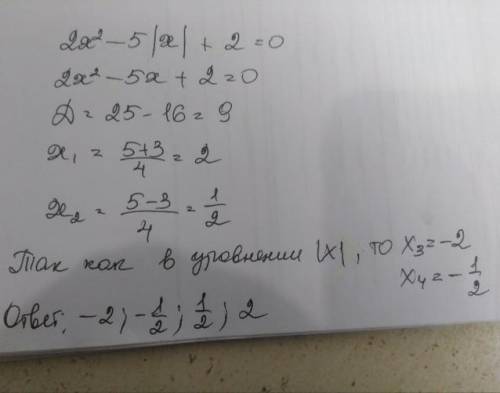 2x² - 5|x| + 2 = 0
2x² - 5x + 2 = 0
D = 25 - 16 = 9
x₁ = (5+3)/4 = 2
x₂ = (5-3)/4 = 1/2
Так как в уравнении |x|, то x₃ = -2
x₄ = -1/2
Ответ, -2; -1/2; 1/2; 2